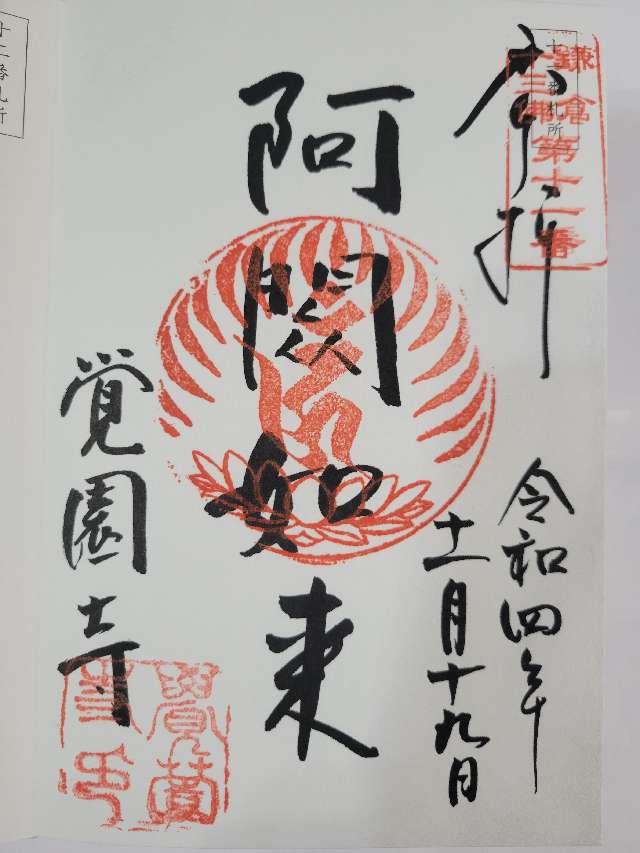 奉拝
十一番札所
鎌倉
十三佛
第十一番
令和四年
十一月十九日
阿閦如来
覚園寺
十二番札所